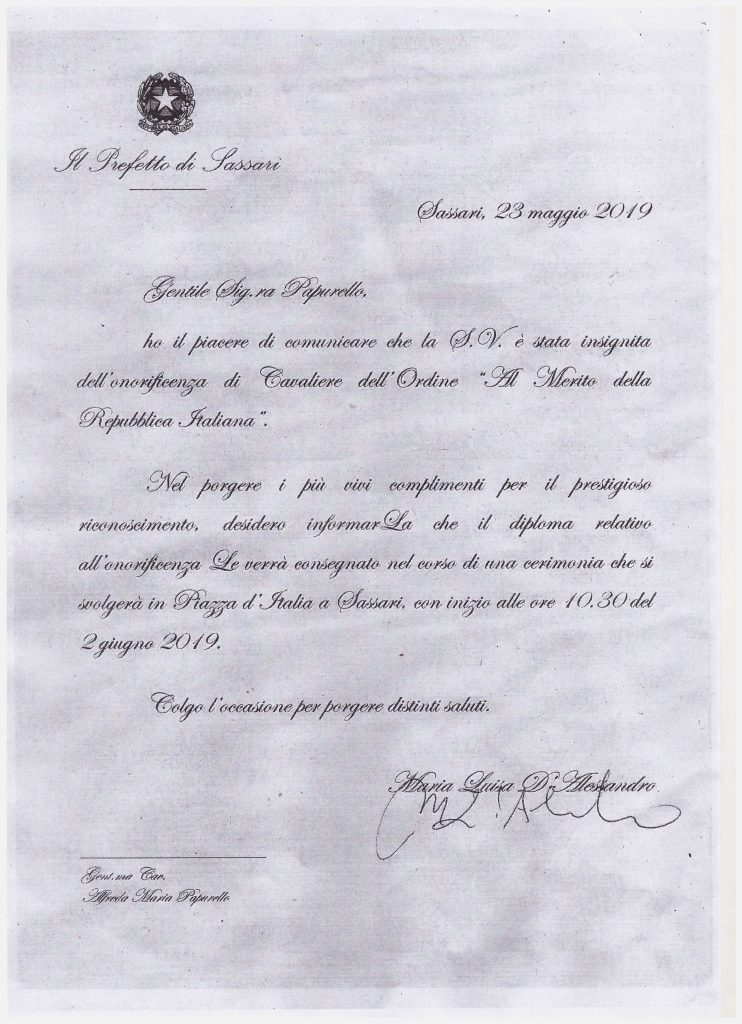 Il Prefetto di Sassari
Sassari, 23 maggio 2019
Gentile Sig.ra Papurello,
ho il piacere di comunicare che la S.V. è stata insignita
dell'onorificenza di Cavaliere dell'Ordine "Al Merito della
Repubblica Italiana".
Nel porgere i più vivi complimenti per il prestigioso
riconoscimento, desidero informarLa che il diploma relativo
all'onorificenza Le verrà consegnato nel corso di una cerimonia che si
svolgerà in Piazza d'Italia a Sassari, con inizio alle ore 10.30 del
2 giugno 2019.
Colgo l'occasione per porgere distinti saluti.
Maria Luisa D'Alessandro
Gent.ma Cav.
Alfreda Maria Papurello